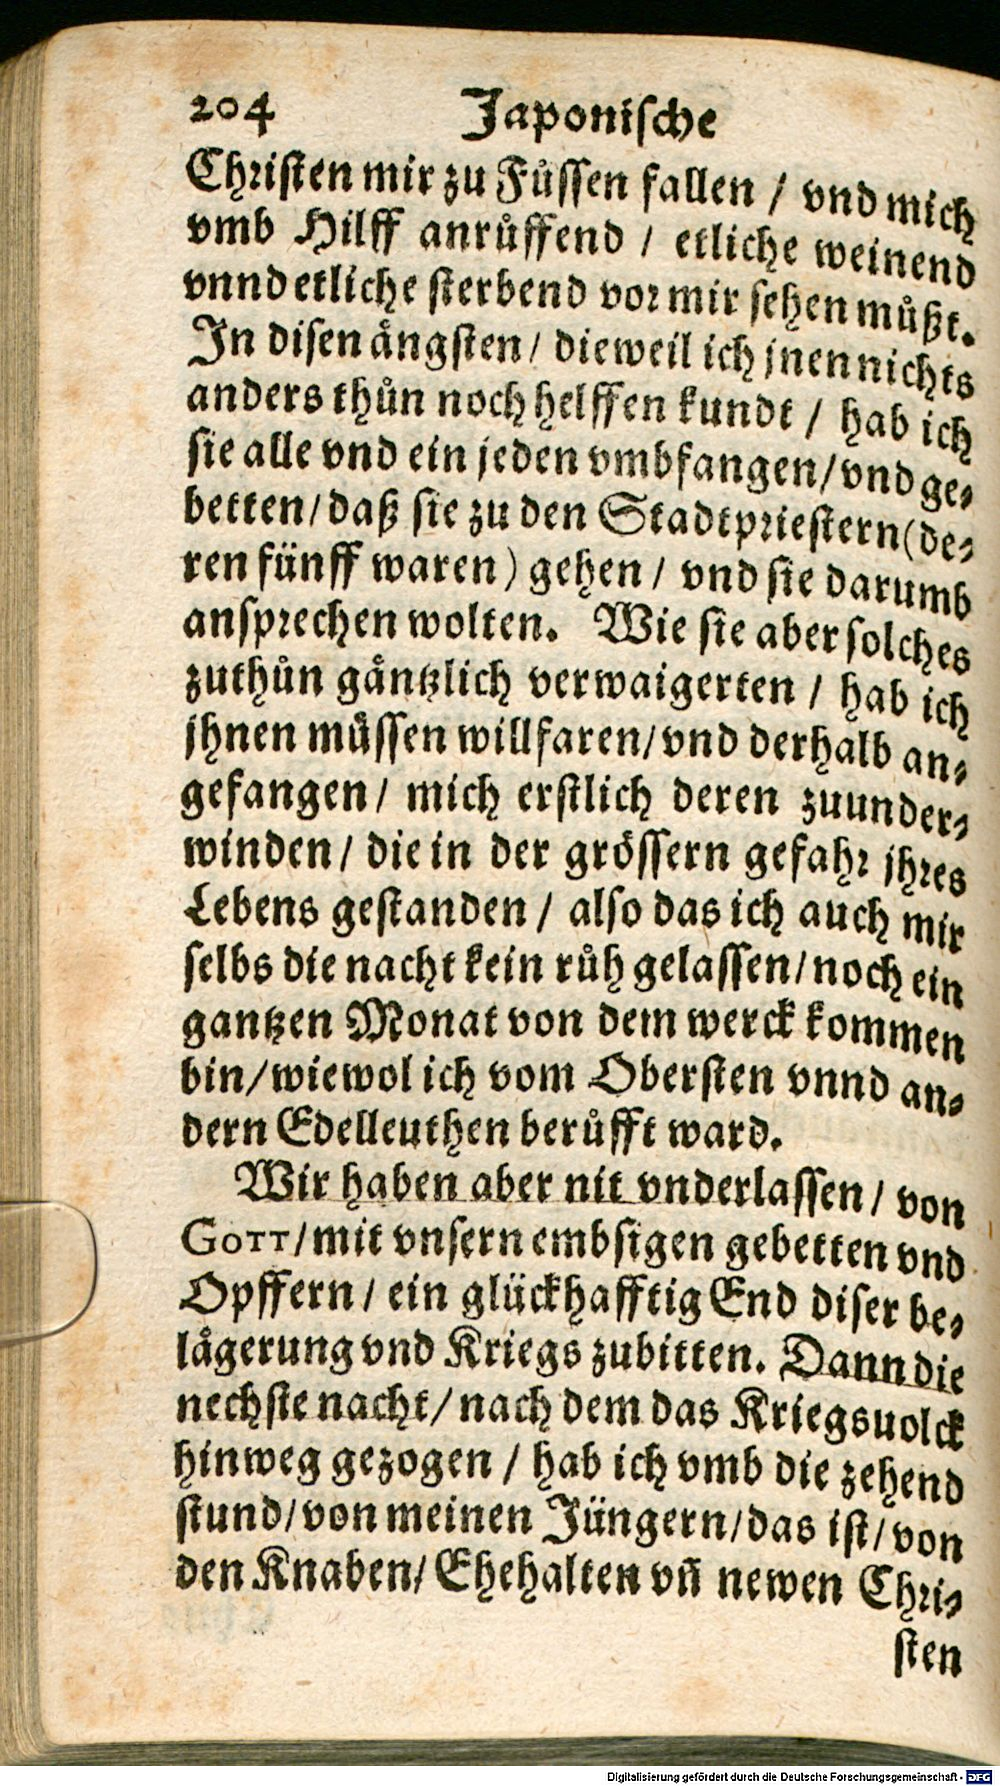 204 Japonische
Christen mir zu Fuͤssen fallen / vnd mich
vmb Hilff anruͦffend / etliche weinend
vnnd etliche sterbend vor mir sehen muͤßt.
In disen aͤngsten / dieweil ich jnen nichts
anders thuͦn noch helffen kundt / hab ich
sie alle vnd ein jeden vmbfangen / vnd ge-
betten / daß sie zu den Stadtpriestern (de-
ren fünff waren) gehen / vnd sie darumb
ansprechen wolten. Wie sie aber solches
zuthuͦn gaͤntzlich verwaigerten / hab ich
jhnen muͤssen willfaren / vnd derhalb an-
gefangen / mich erstlich deren zuunder-
winden / die in der groͤssern gefahr jhres
Lebens gestanden / also das ich auch mir
selbs die nacht kein ruͦh gelassen / noch ein
gantzen Monat von dem werck kommen
bin / wiewol ich vom Obersten vnnd an-
dern Edelleuthen beruͦfft ward.
Wir haben aber nit vnderlassen / von
GOTT / mit vnsern embsigen gebetten vnd
Opffern / ein glückhafftig End diser be-
laͤgerung vnd Kriegs zubitten. Dann die
nechste nacht / nach dem das Kriegsuolck
hinweg gezogen / hab ich vmb die zehend
stund / von meinen Jüngern / das ist / von
den Knaben / Ehehalten vñ newen Chri-
sten
Digitalisierung gefördert durch die Deutsche Forschungsgemeinschaft - DFG